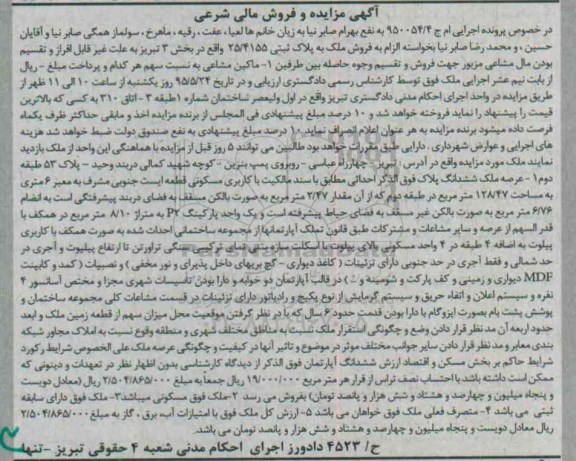 آگهی مزایده و فروش مالی شرعی
در خصوص پرونده اجرایی ام ج ۹۵۰۰۵۴/۴ به نفع بهرام صابر نیا به زیان خانم ها لعیا، عفت، رقیه، ماهرخ، سولماز همگی صابر نیا و آقایان
حسین، و محمد رضا صابر نیا بخواسته الزام به فروش ملک به پلاک ثبتی ۲۵/۴۱۵۵ واقع در بخش ۳ تبریز به علت غیر قابل افراز و تقسیم
بودن مال مشاعی مزبور جهت فروش و تقسیم وجوه حاصله بین طرفین ۱- ماکین مشاعی به نسبت سهم هر کدام و پرداخت مبلغ - ریال
از بابت نیم عشر اجرایی ملک فوق توسط کارشناس رسمی دادگستری ارزیابی و در تاریخ ۹۵/۵/۲۴ روز یکشنبه از ساعت ۱۰ الی ۱۱ ظهر از
طریق مزایده در واحد اجرای احکام مدنی دادگستری تبریز واقع در اول ولیعصر ساختمان شماره ۱طبقه ۳ - اتاق ۳۱۰ به کسی که بالاترین
قیمت را پیشنهاد را نماید فروخته خواهد شد و ۱۰ درصد مبلغ پیشنهادی فی المجلس از برنده مزایده اخذ و مابقی حداکثر ظرف یکماه
فرصت داده میشود برنده مزایده به هر عنوان اعلام انصراف نماید، ۱۰ درصد مبلغ پیشنهادی به نفع صندوق دولت ضبط خواهد شد هزینه
های اجرایی و عوارض شهرداری، دارایی طبق مقررات خواهد بود طالبین می توانند ۵ روز قبل از مزایده با هماهنگی این واحد از ملک بازدید
نمایند ملک مورد مزایده واقع در آدرس : تبریز- چهارراه عباسی - روبروی پمپ بنزین - کوچه شهید کمالی دربند وحید - پلاک ۵۳ طبقه
دوم۱- عرصه ملک ششدانگ پلاک فوق الذکر احداثی مطابق با سند مالکیت با کاربری مسکونی قطعه ایست جنوبی مشرف به معبر ۶ متری
به مساحت ۱۲۸/۴۷ متر مربع در طبقه دوم که از آن مقدار ۲/۴۷ متر مربع به صورت بالکن مسقف به فضای دربند پیشرفتگی است به انضام
۶/۷۶ متر مربع به صورت بالکن غیر مسقف به فضای حیاط پیشرفته است و یک واحد پارکینگ P۲ به متراژ ۸/۱۰ متر مربع در همکف با
قدر السهم از عرصه و سایر مشاعات و مشترکات طبق قانون تملک آپارتمانها از مجموعه ساختمانی احداث شده به صورت همکف با کاربری
پیلوت به اضافه ۴ طبقه در ۴ واحد مسکونی بالای پیلوت با اسکلت سازه بتنی نمای ترکیبی سنگی تراورتن تا ارتفاع پیلیوت و آجری در
حد شمالی و فقط آجری در حد جنوبی دارای تزئینات ( کاغذ دیواری - گچ بریهای داخل پذیرای و نور مخفی ) و نصبیات ( کمد و کابینت
MDF دیواری و زمینی و کف پارکت و شومینه و ) در قالب آپارتمان دو خوابه و دارا بودن تأسیسات شهری مجزا و مختص آسانسور ۴
نفره و سیستم اعلان و اتفاء حریق و سیستم گرمایش از نوع پکیج و رادیاتور دارای تزئینات در قسمت مشاعات کلی مجموعه ساختمان و
پوشش پشت بام بصورت ایزوگام با دارا بودن قدمت حدود ۶ سال که با در نظر گرفتن موقعیت محل میزان سهم از قطعه زمین ملک و ابعد
حدود اربعه آن مد نظر قرار دادن وضع و چگونگی استقرار ملک نسبت به مناطق مختلف شهری و منطقه وقوع نسبت به املاک مجاور شبکه
بندی معابر و مد نظر قرار دادن سایر جوانب مختلف موثر در موضوع و تاثیر آنها در کیفیت و چگونگی عرصه ملک علی الخصوص شرایط رکورد
شرایط حاکم بر بخش مسکن و اقتصاد ارزش ششدانگ آپارتمان فوق الذکر از دیدگاه کارشناسی بدون اظهار نظر در تعهدات و دیونی که
ممکن است داشته باشد با احتساب نصف تراس از قرار هر متر مربع ۱۹/۰۰۰/۰۰۰ ریال جمعاً به مبلغ ۲/۵۰۴/۸۶۵/۰۰۰ ریال (معادل دویست
و پنجاه میلیون و چهارصد و هشتاد و شش هزار و پانصد تومان) بفروش می رسد ۲-ملک فوق مسکونی میباشد۳- ملک فوق دارای سابقه
ثبتی می باشد ۴- متصرف فعلی ملک فوق خواهان می باشد ۵- ارزش کل ملک فوق با امتیازات آب، برق، گاز به مبلغ ۲/۵۰۴/۸۶۵/۰۰۰
ریال معادل دویست و پنجاه میلیون و چهارصد و هشتاد و شش هزار و پانصد تومان می باشد.
ح/ ۴۵۲۳ دادورز اجرای احکام مدنی شعبه ۴ حقوقی تبریز -تنها